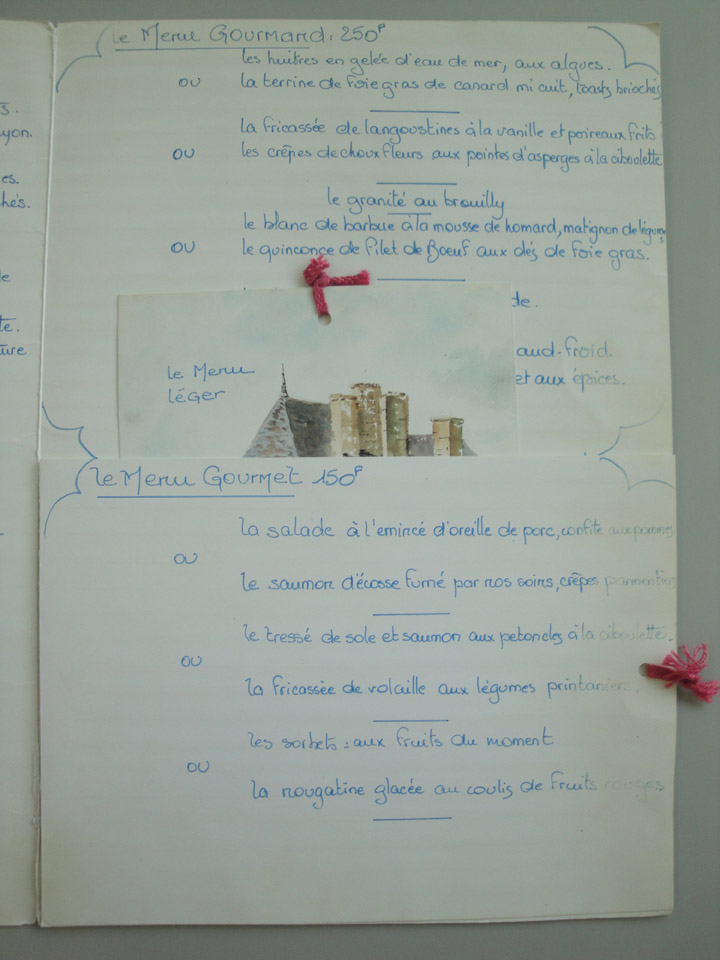 s.
yon.
es.
hés.
le
te.
ture
le Menu Gourmand: 250F
les huitres en gelée d'eau de mer, aux algues.
ou
la terrine de foie gras de canard mi cuit, toasts briochés
la fricassée de langoustines à la vanille et poireaux frits
ou
les crêpes de choux fleurs aux pointes d'asperges à la ciboulette
le granité au brouilly
le blanc de barbue à la mousse de homard, matignon de légumes
ou
le quinconce de filet de Boeuf aux dés de foie gras.
de.
aud-froid.
et aux épices.
le Menu
léger
le Menu Gourmet 150F
la salade à l'emincé d'oreille de porc, confite aux pommes
ou
le saumon d'écosse fumé par nos soins, crêpes parmentier
le tressé de sole et saumon aux petoncles à la ciboulette.
ou
la fricassée de volaille aux légumes printaniers.
les sorbets: aux fruits du moment
ou
la nougatine glacée au coulis de fruits rouges